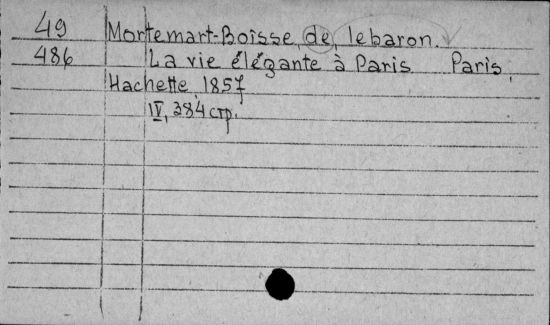 49 Mortemart-Boisse, de, le baron.
486 La vie élégante à Paris Paris,
Hachette, 1857
IV, 384 стр.